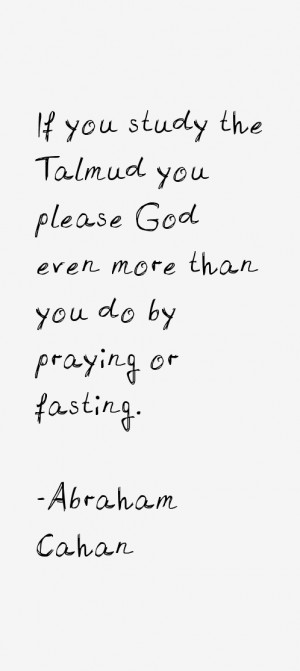 If you study the
Talmud you
please God
even more than
you do by
praying or
fasting.
-Abraham
Cahan